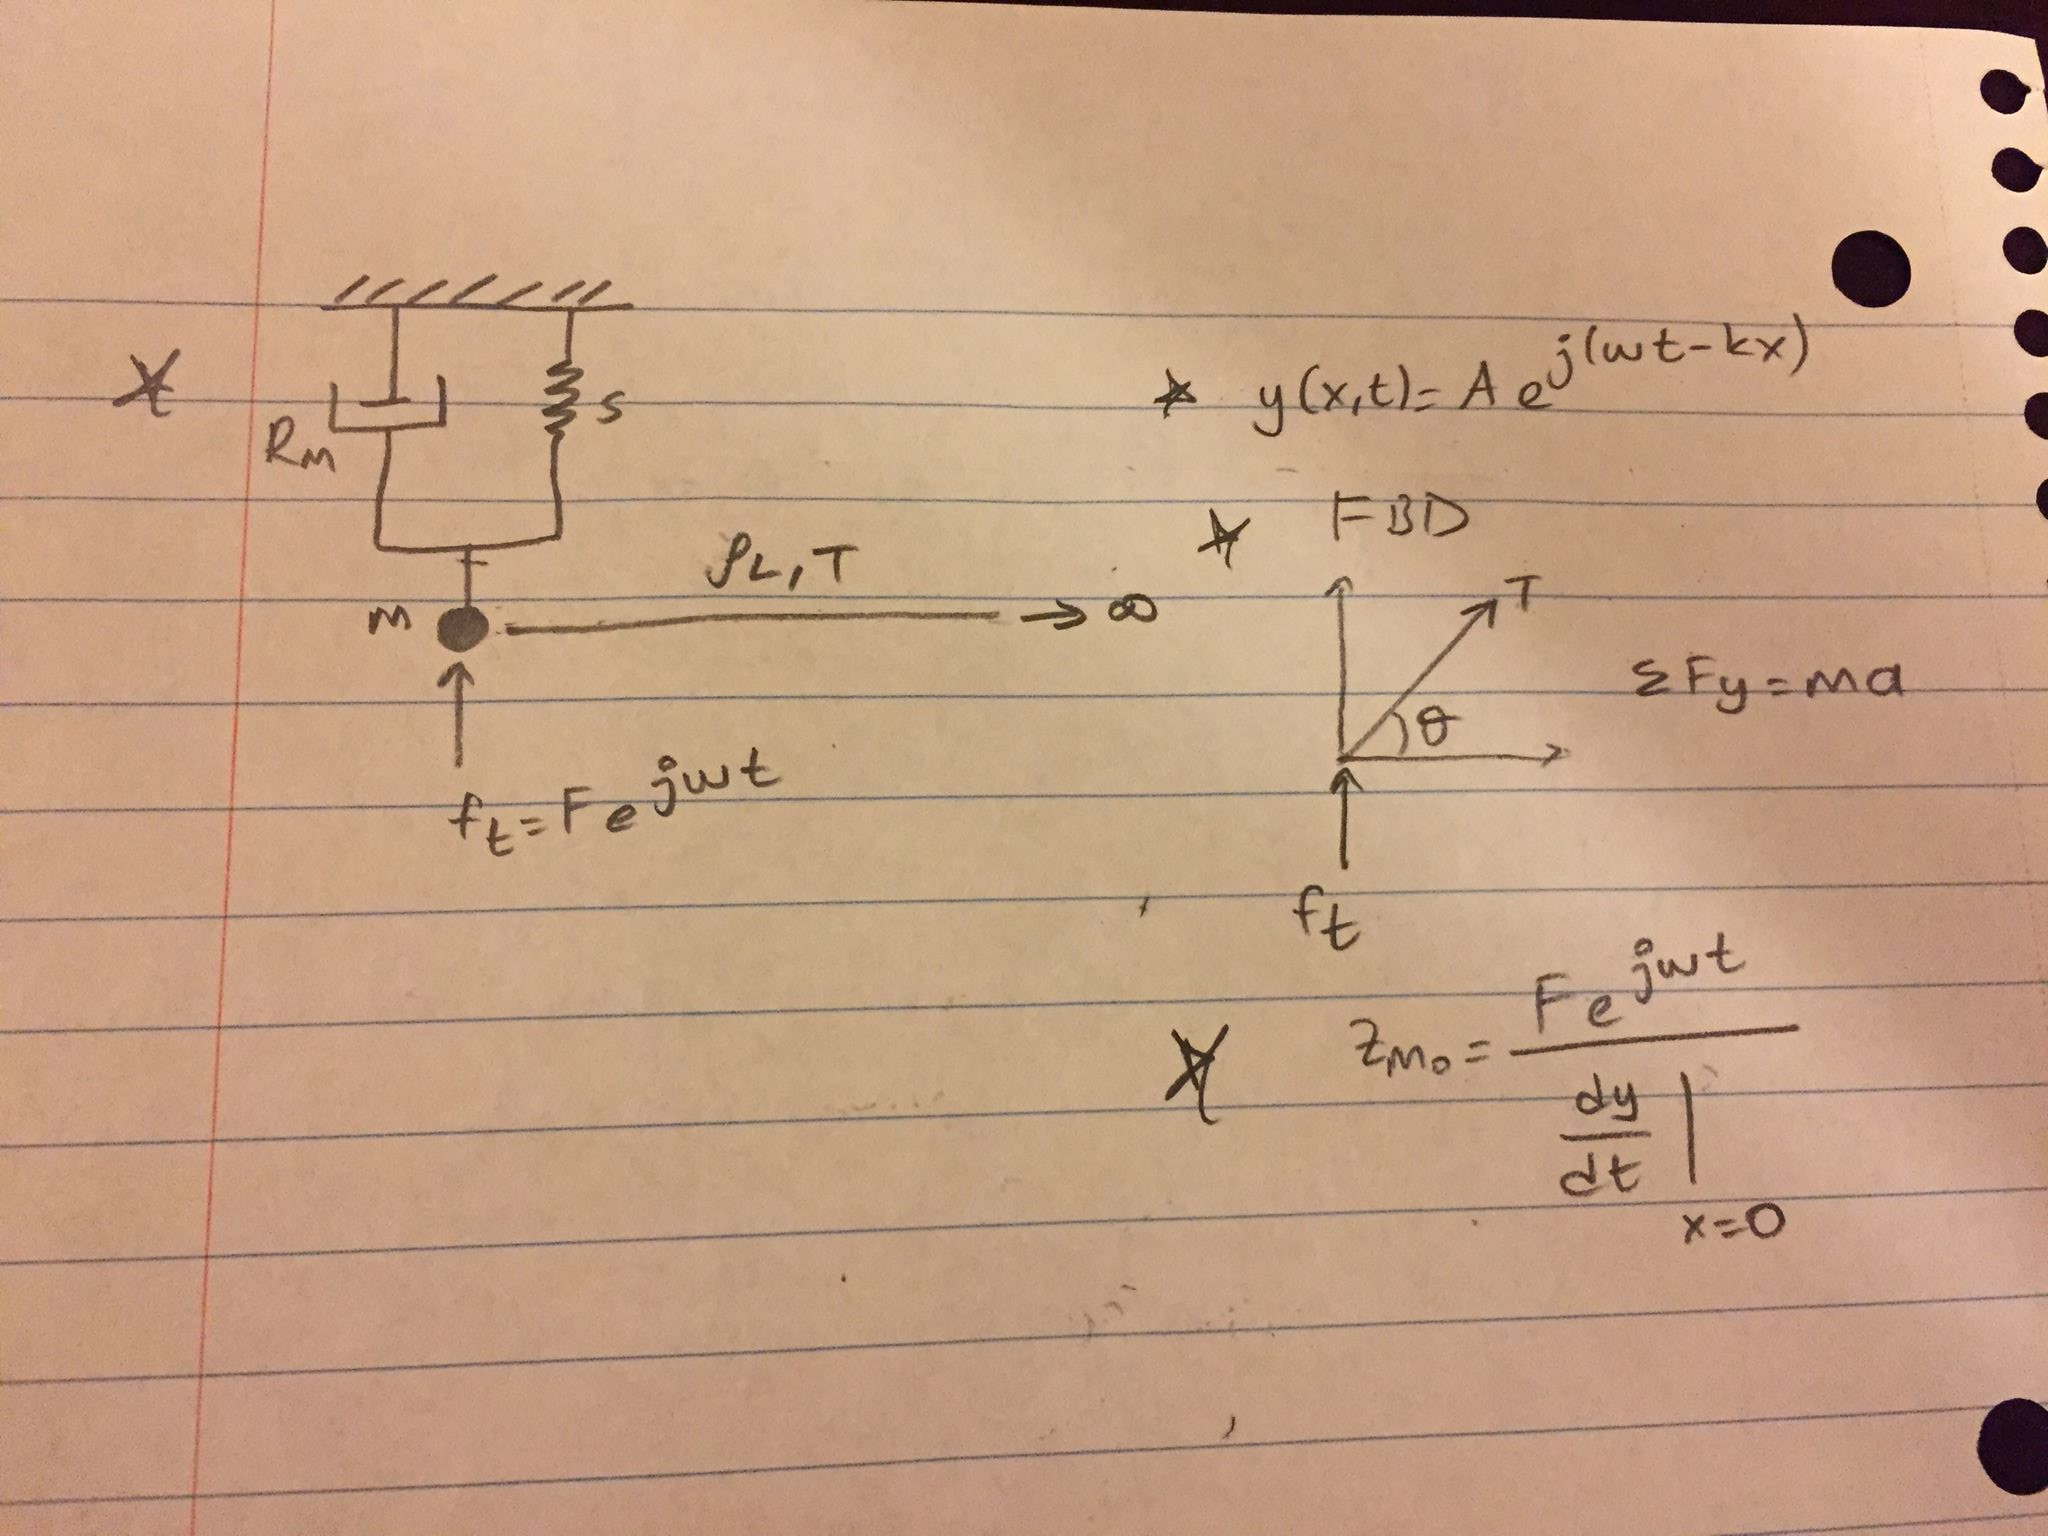 Rm
s
ρL, T
m
→ ∞
ft = Fe^jωt
y(x,t) = A e^j(ωt-kx)
FBD
T
θ
ΣFy = ma
ft
Zmo = Fe^jωt / dy/dt | x=0